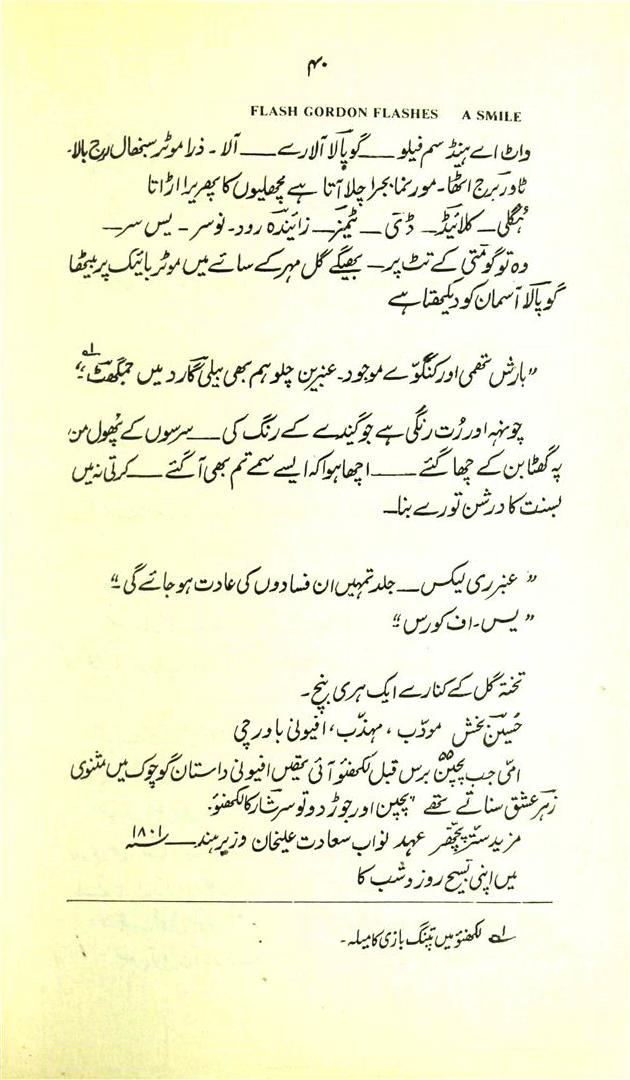 ۴۰
FLASH GORDON FLASHES A SMILE
واٹ اے ہینڈسم فیلو — گوپالا آلارے — آلا۔ ذرا موٹر سنبھال برج بالا۔
ٹاور برج اٹھا۔ مور نما بجرا چلا آتا ہے مچھلیوں کا پھریرا اڑاتا
ہُگلی — کلائیڈ — ڈئی — ٹیمز — زائیندہ رود۔ نو سر۔ یس سر —
وہ تو گومتی کے تٹ پر — بھیگے گل مہر کے سائے میں موٹر بائیک پر بیٹھا
گوپالا آسمان کو دیکھتا ہے
"بارش تھمی اور کنکوّے موجود۔ عنبرین چلو ہم بھی بیلی گارد میں جمگھٹ لہ۔"
چونہہ اور رُت رنگی ہے جو گیندے کے رنگ کی — سرسوں کے پھول من
پہ گھٹا بن کے چھا گئے — اچھا ہوا کہ ایسے سمے تم بھی آ گئے — کرتی نہ میں
بسنت کا درشن تورے بنا —
"عنبر ری لیکس — جلد تمہیں ان فسادوں کی عادت ہو جائے گی۔"
"یس۔ اف کورس"
تختۂ گل کے کنارے ایک ہری بنچ۔
حُسین بخش مودّب، مہذّب، افیونی باورچی
امّی جب پچپن ۵۵ برس قبل لکھنؤ آئی تھیں افیونی داستان گو چوک میں مثنوی
زہرِ عشق سناتے تھے "پچپن اور جوڑ دو تو سرشار کا لکھنؤ۔
مزید ستّر پچھتّر عہد نواب سعادت علیخان وزیرِ ہند — ۱۸۰۱؁
میں اپنی تسبیح روز و شب کا
لہ لکھنؤ میں پتنگ بازی کا میلہ۔